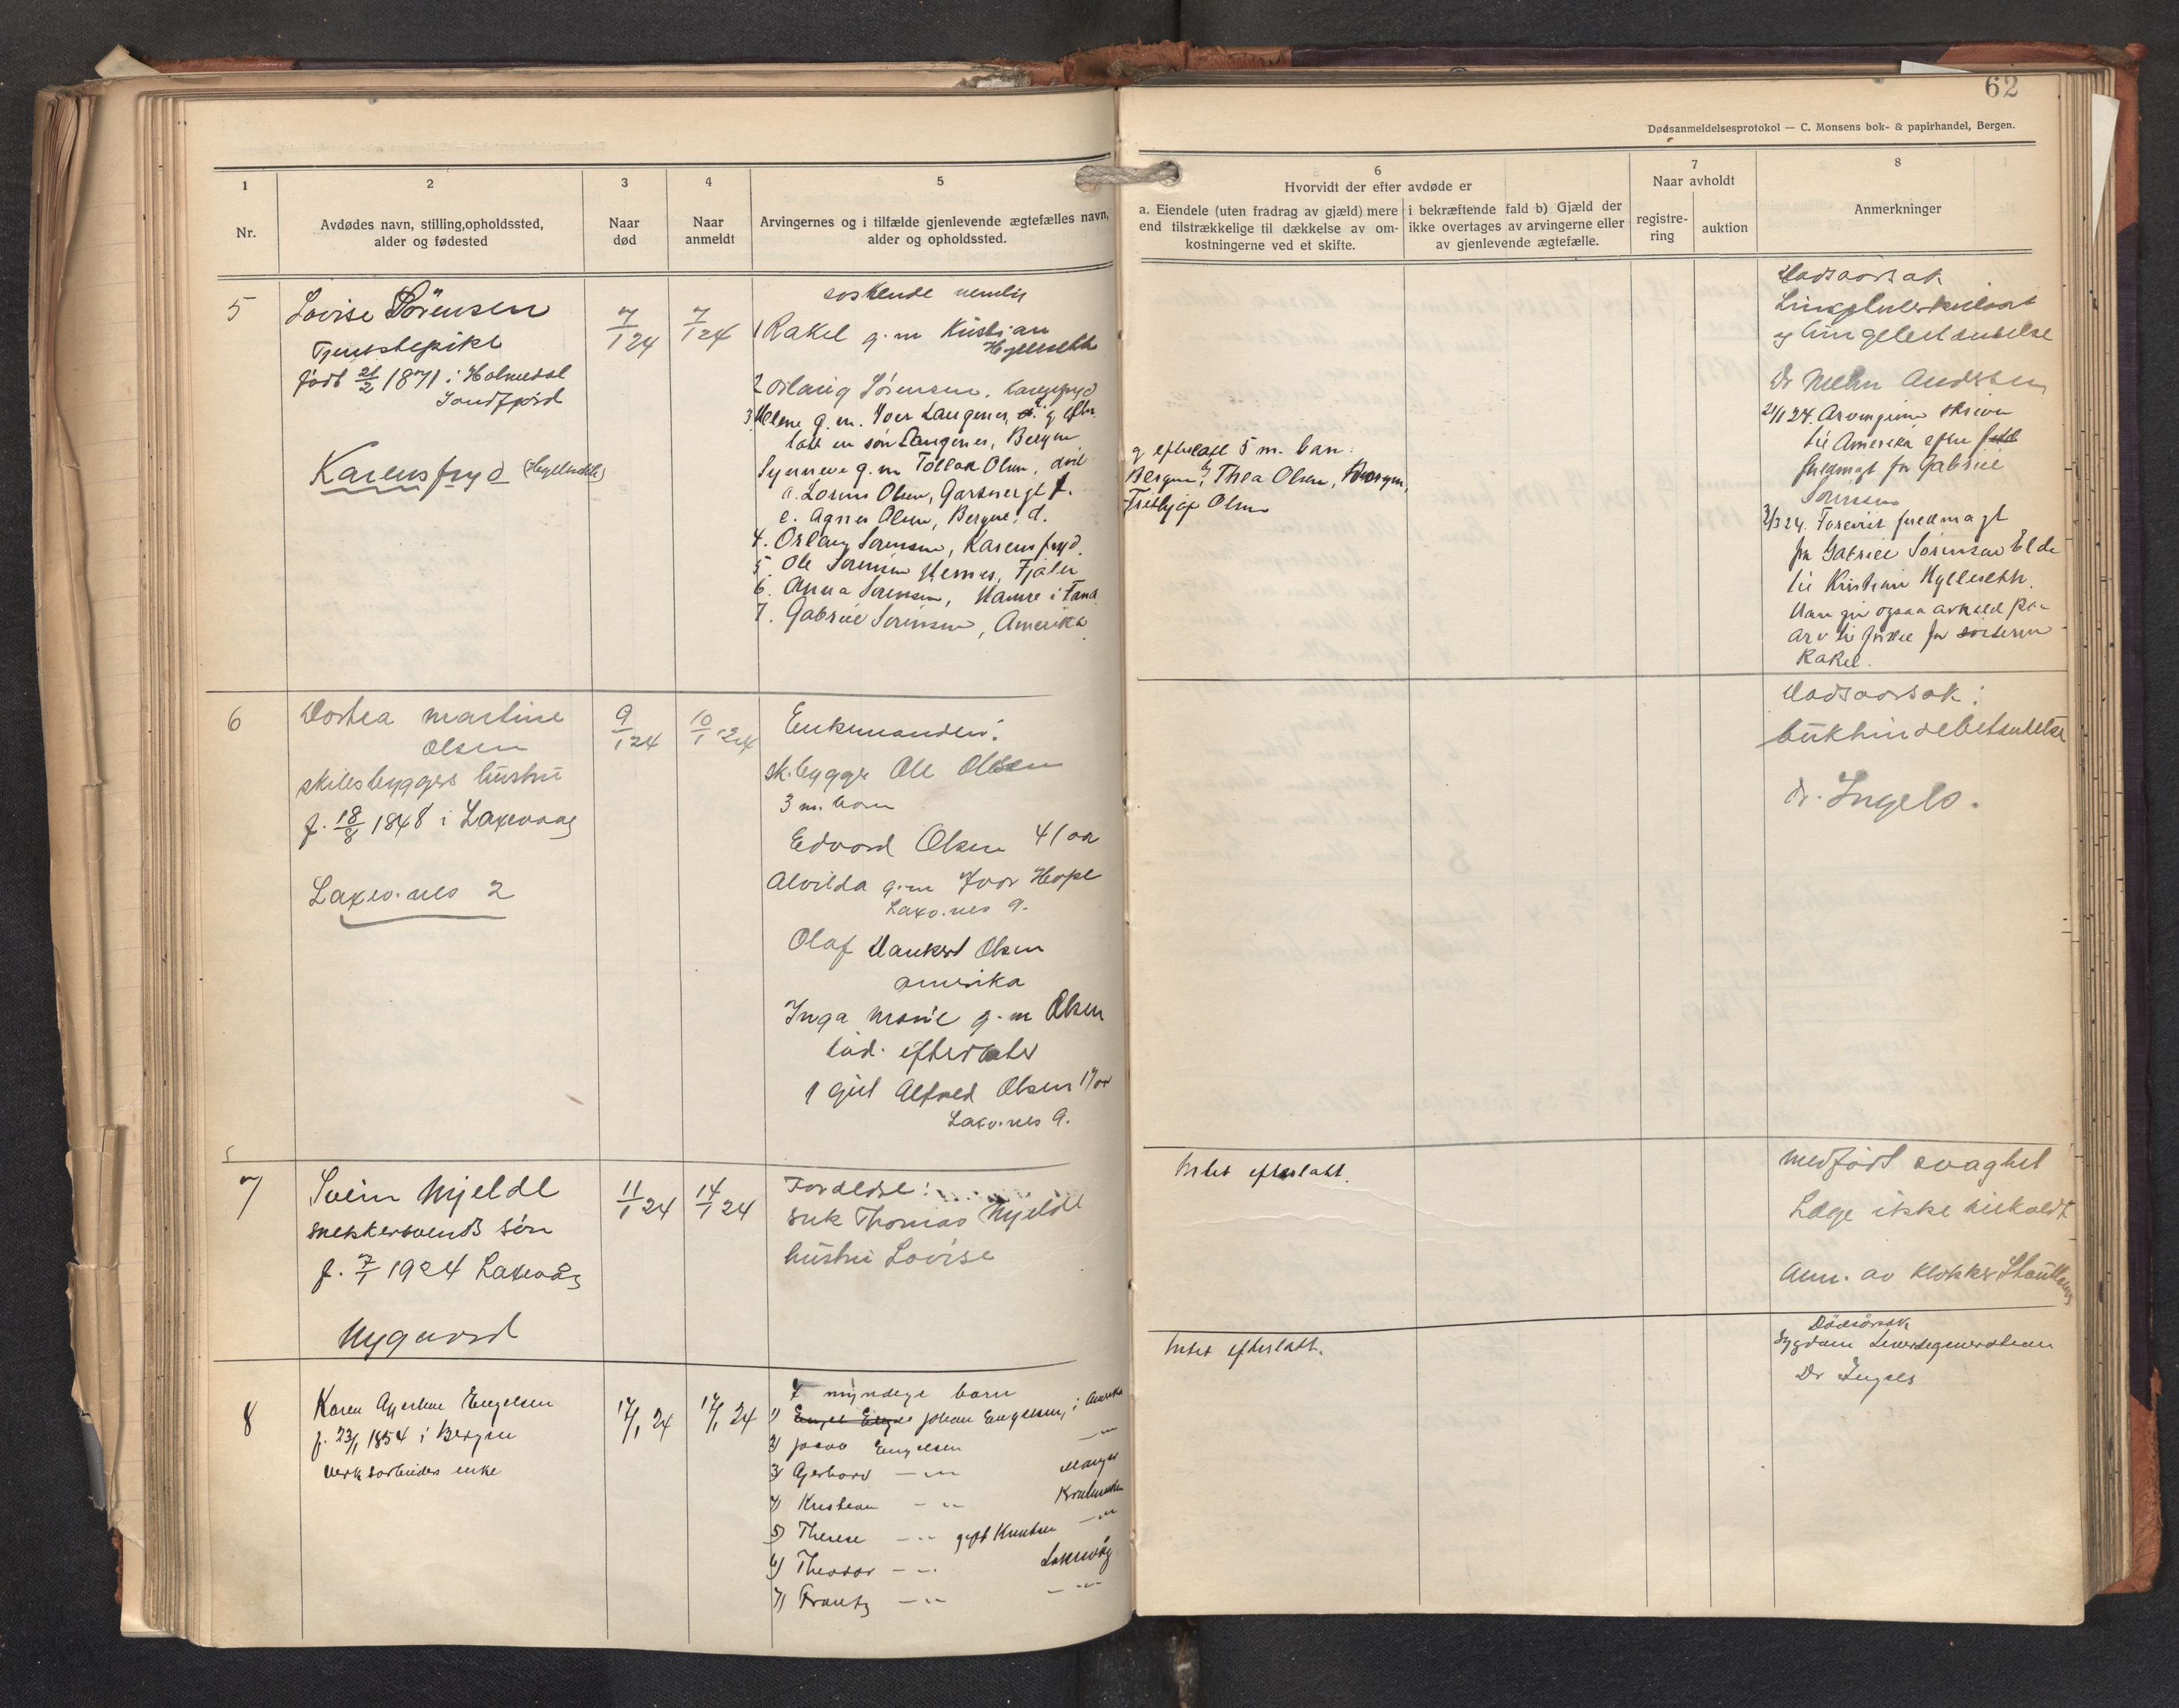 62
Dødsanmeldelsesprotokol — C. Monsens bok- & papirhandel, Bergen.
1
2
3
4
5
6
7
8
Nr.
Avdødes navn, stilling, opholdssted,
alder og fødested
Naar
død
Naar
anmeldt
Arvingernes og i tilfælde gjenlevende ægtefælles navn,
alder og opholdssted.
Hvorvidt der efter avdøde er
a. Eiendele (uten fradrag av gjæld) mere
end tilstrækkelige til dækkelse av om-
kostningerne ved et skifte.
i bekræftende fald b) Gjæld der
ikke overtages av arvingerne eller
av gjenlevende ægtefælle.
Naar avholdt
registre-
ring
auktion
Anmerkninger
5
Lovise Sörensen
Tjenestepike
født 21/2 1871 i Holmedal
Søndfjord
Karensfryd
7/1 24
7/1 24
søskende nemlig
1 Rakel g.m Kristian
Hylleseth
2 Oslaug Sørensen, Karensfryd
3 Helene g.m. Iver Langenes, d. g efter
latt en søn Langenes, Bergen
Synneve g.m Tollak Olsen, død
a. Lorens Olsen, Gartnergt
c. Agnes Olsen, Bergen, d.
4. Oslaug Sørensen, Karensfryd.
5 Ole Sørensen Hernes, Fjaler
6. Anna Sørensen, Hamre i Fana
7. Gabriel Sørensen, Amerika
g efterlatt 5 m. barn:
Bergen, Thea Olsen, Bergen,
Fritjof Olsen
Dødsaarsak
og lungebetændelse
Dr Andersen
21/1 24. Arvingerne skriver
til Amerika efter
fuldmagt for Gabriel
Sørensen
3/3 24. Forevist fuldmagt
fra Gabriel Sørensen Elde
til Kristian Hylleseth.
Han gir ogsaa avkald paa
arv til fordel for søsteren
Rakel.
6
Dortea Martine
Olsen
skibsbyggers hustru
f. 18/8 1848 i Laxevaag
Laxev.nes 2
9/1 24
10/1 24
Enkemanden:
sk.bygger Ole Olsen
3 m. barn
Edvard Olsen 41 aar
Alvilda g.m Ivar Hope
Laxv.nes 9.
Olaf Dankert Olsen
Amerika
Inga Marie g.m Olsen
død. efterlater
1 gut Alfred Olsen 17 aar
Laxv.nes 9.
Dødsaarsak:
bukhindebetændelse
dr. Ingels.
7
Svein Mjelde
snekkersvends søn
f. 7/1 1924 Laxevåg
Nygaard
11/1 24
14/1 24
Foreldre:
snk Thomas Mjelde
hustru Lovise
Intet efterlatt.
Medfødt svaghet
Læge ikke tilkaldt
Anm. av klokker
8
Karen Engelsen
f. 23/1 1854 i Bergen
verksarbeiders enke
17/1 24
17/1 24
7 myndige barn
1) Johan Engelsen, i Amerika
2) Jacob Engelsen — " —
3) Gerhard — " — Manger
4) Kristian — " —
5) Therese — " — gift Knutsen — " —
6) Theodor — " — Laxevåg
7) Frantz — " — — " —
Intet efterlatt.
Dødsårsak
Sygdom Leverdegeneration
Dr Ingels